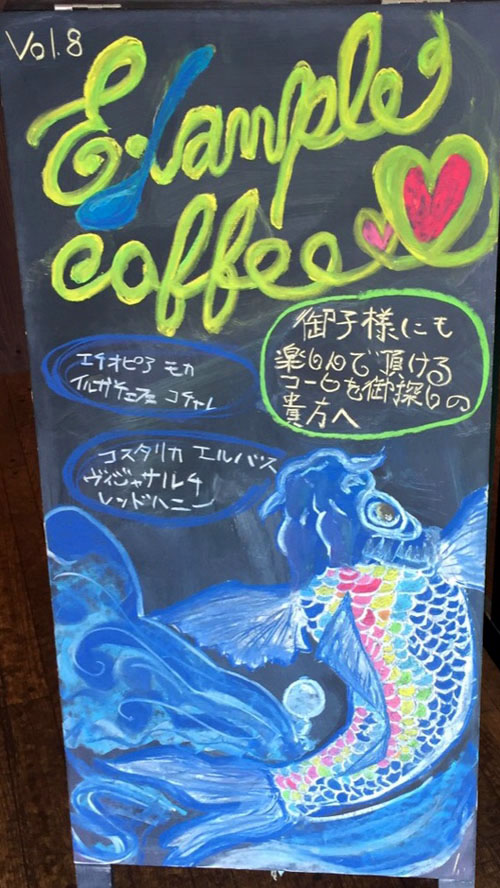 Vol.8
Example
coffee
御子様にも
楽しんで頂ける
コーヒーを御探しの
貴方へ
エチオピア モカ
イルガチェフェ コチャレ
コスタリカ エルバス
ヴィジャサルチ
レッドハニー